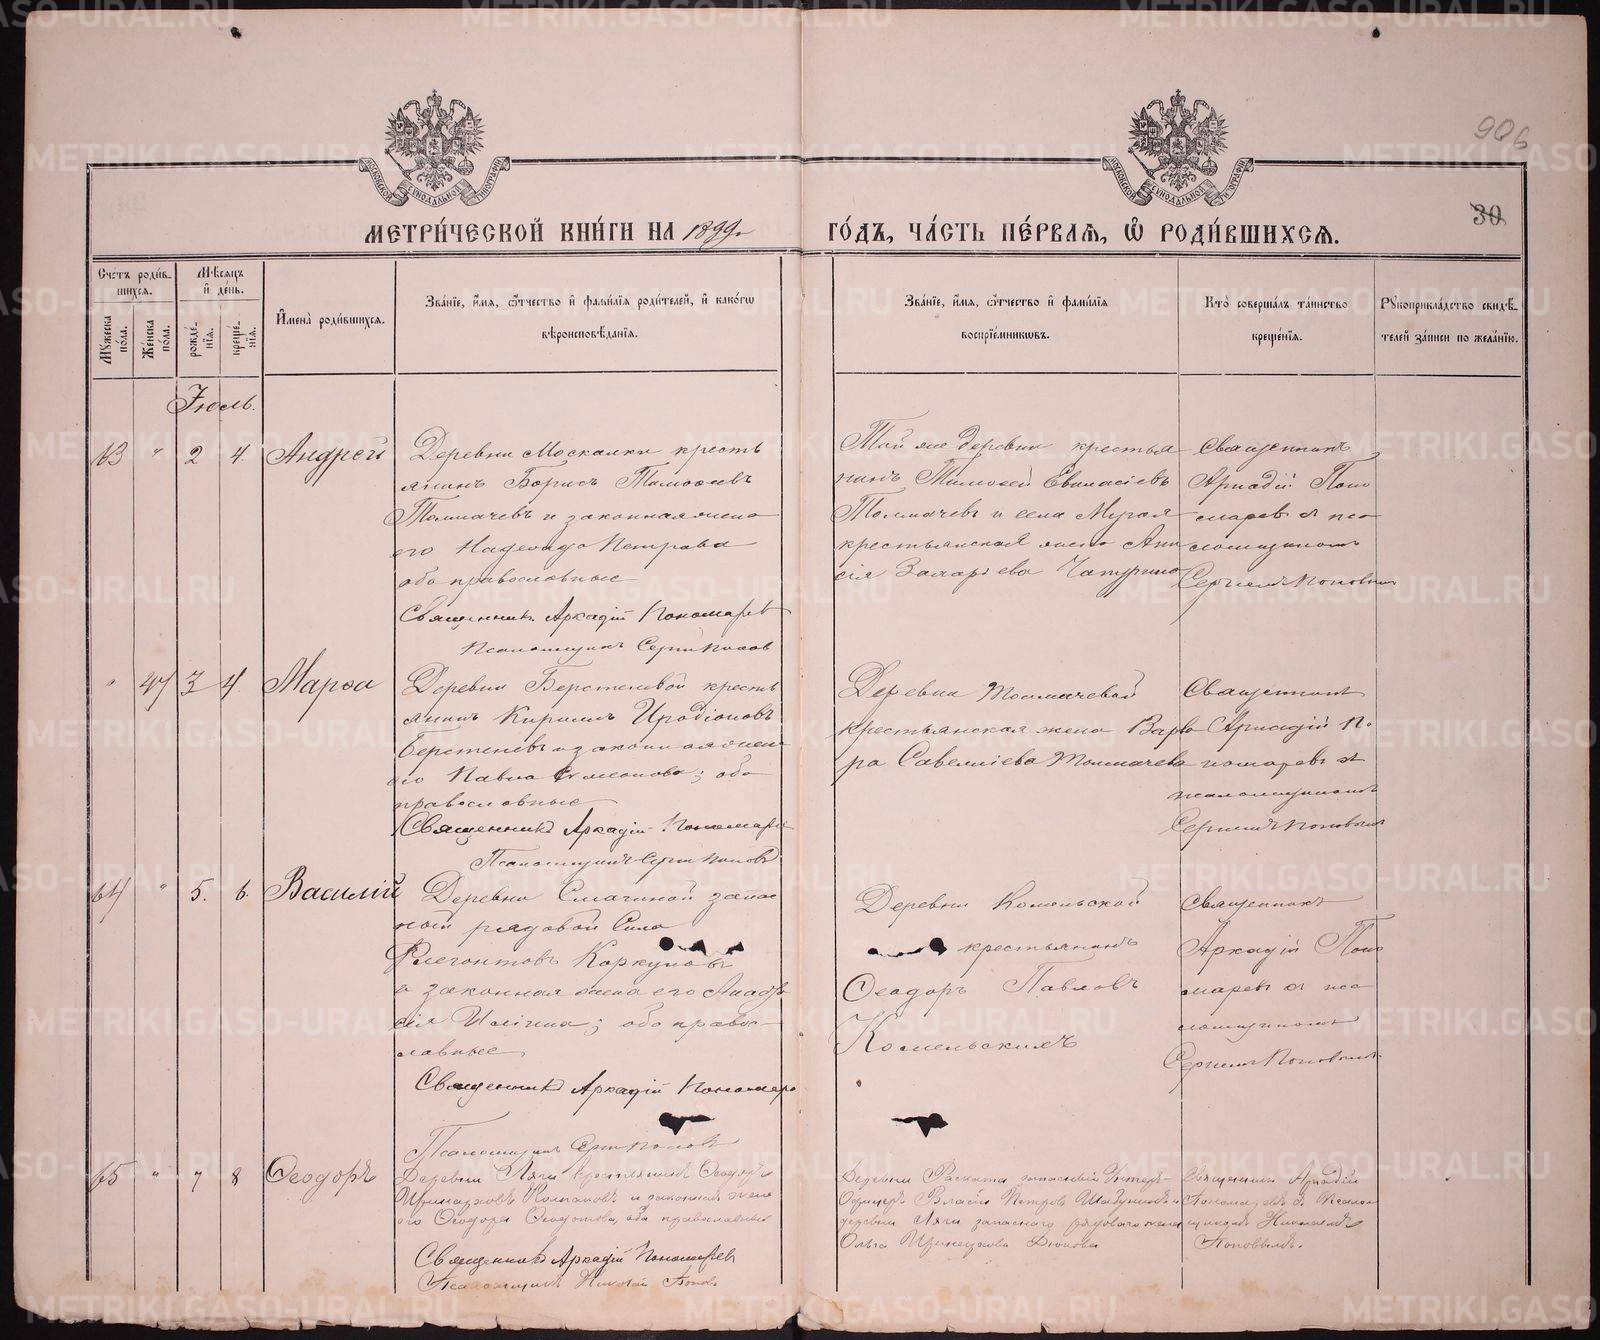 906
30
МОСКОВСКОЙ СѴНОДАЛЬНОЙ ТИПОГРАФІИ
МОСКОВСКОЙ СѴНОДАЛЬНОЙ ТИПОГРАФІИ
МЕТРИ́ЧЕСКОЙ КНИ́ГИ НА 1899
ГО́ДЪ, ЧА́СТЬ ПЕ́РВАѦ, Ѡ҆ РОДИ́ВШИХСѦ.
Сче́тъ роди́вшихсѧ.
Мѣ́сѧцъ и҆ де́нь.
Мꙋ́жеска по́ла.
Же́нска по́ла.
рожде́нїѧ.
креще́нїѧ.
И҆мена̀ роди́вшихсѧ.
Зва́нїе, и҆́мѧ, ѻ҆́тчество и҆ фами́лїѧ роди́телей, и҆ како́гѡ
вѣроисповѣ́данїѧ.
Зва́нїе, и҆́мѧ, ѻ҆́тчество и҆ фами́лїѧ
воспрїе́мникѡвъ.
Кто̀ соверша́лъ та́инство
креще́нїѧ.
Рꙋкоприкла́дство свидѣ́-
телей за́писи по жела́нїю.
Іюль.
63 " 2 4 Андрей
Деревни Москалки кресть
янинъ Борисъ Тимофеевъ
Толмачевъ и законная жена
его Надежда Петрова
оба православные
Священникъ Аркадій Пономаревъ
Псаломщикъ Сергій Поповъ
Той же деревни крестья
нинъ Тимофей
Толмачевъ и села
крестьянская жена Ани
сія Захарьева
Священникъ
Аркадій Поно
маревъ съ пса
ломщикомъ
Сергіемъ Поповымъ
" 47 3 4 Марѳа
Деревни Берстеневой кресть
янинъ Кириллъ Иродіоновъ
Берстеневъ и законная жена
его Павла Симеонова; оба
православные
Священникъ Аркадій Пономаревъ
Псаломщикъ Сергій Поповъ
Деревни Толмачевой
крестьянская жена Варва
ра Савелліева Толмачева
Священникъ
Аркадій По
номаревъ съ
псаломщикомъ
Сергіемъ Поповымъ
64 " 5. 6. Василій
Деревни запас
ной рядовой Сила
Флегонтовъ Коркуновъ
и законная жена его Анаста
сія Ильина; оба право-
славные
Священникъ Аркадій Пономаревъ
Псаломщикъ Сергій Поповъ
Деревни Комельской
крестьянинъ
Ѳеодоръ Павловъ
Комельскихъ
Священникъ
Аркадій Поно
маревъ съ пса
ломщикомъ
Сергіемъ Поповымъ
65 " 7 8 Ѳеодоръ
Деревни Ляги крестьянинъ Ѳеодоръ
и законная жена
его Ѳеодора Ѳеодотова, оба православные
Священникъ Аркадій Пономаревъ
Псаломщикъ Николай Поповъ
Деревни Раската запасный Унтеръ-
Офицеръ Власій Петровъ и
деревни Ляги запаснаго рядоваго жена
Ольга
Священникъ Аркадій
Пономаревъ съ Псалом
щикомъ Николаемъ
Поповымъ.
METRIKI.GASO-URAL.RU